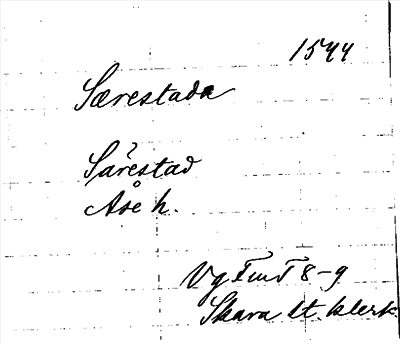 1544
Særestada
Särestad
Åse h.
Vg FmT 8-9
Skara st. klerk.